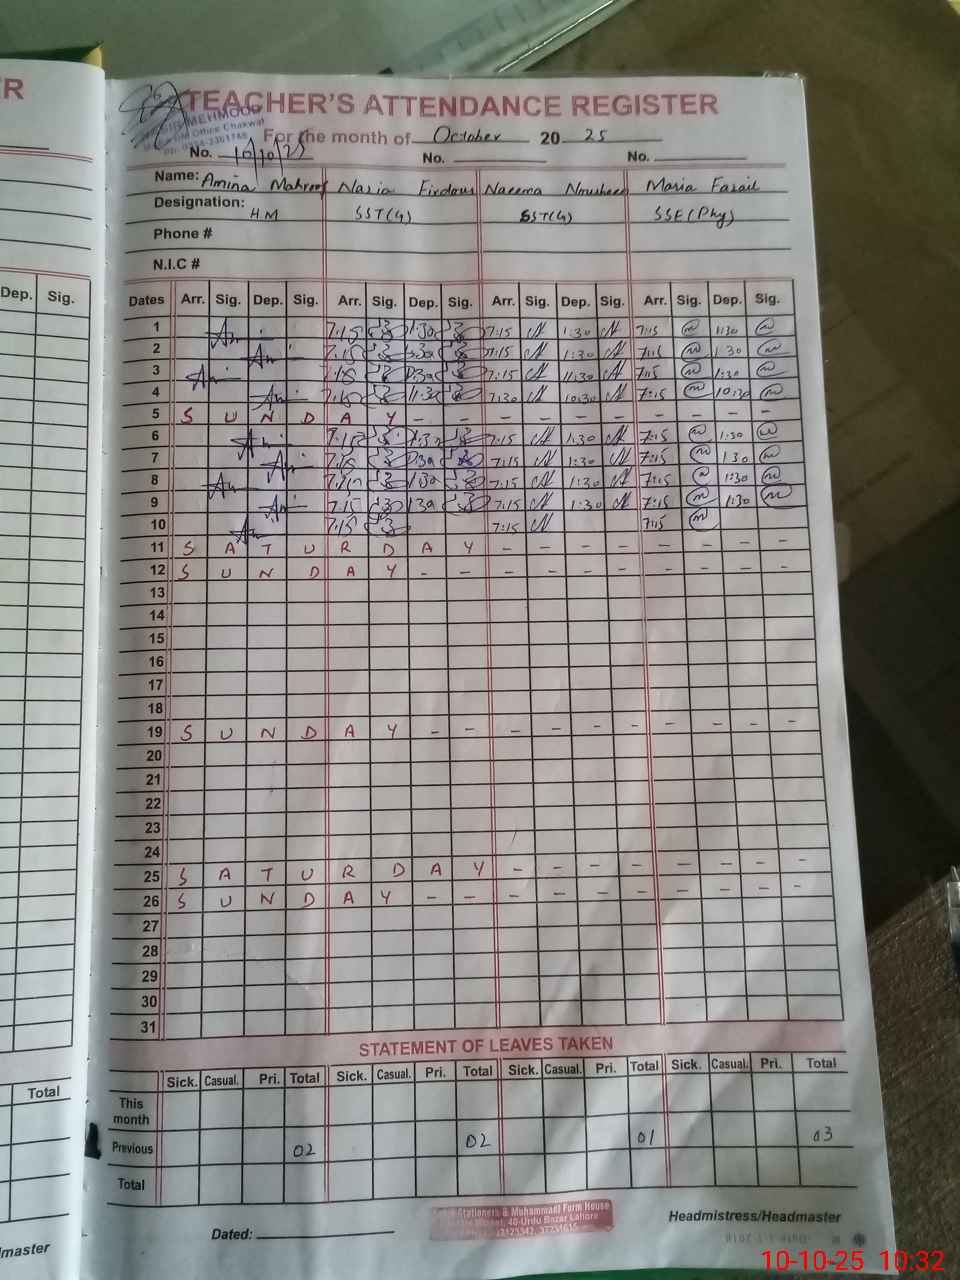 R
TEACHER'S ATTENDANCE REGISTER
MEHMOOD
Office Chakwal
For the month of October 20 25
No. 10/10/25 No. No.
Name: Amina Mahroof Nazia Firdous Naeema Nousheen Maria Fazail
Designation: H.M SST(G) SST(G) SSE(Phy)
Phone #
N.I.C #
Dep. Sig.
Dates Arr. Sig. Dep. Sig. Arr. Sig. Dep. Sig. Arr. Sig. Dep. Sig. Arr. Sig. Dep. Sig.
1 7:15 1:30 7:15 1:30 7:15 1:30
2 7:15 1:30 7:15 1:30 7:15 1:30
3 7:15 7:15 11:30 7:15 1:30
4 7:15 11:30 7:30 10:30 7:15 10:30
5 S U N D A Y - - - - - - - - - -
6 7:15 1:30 7:15 1:30 7:15 1:30
7 7:15 1:30 7:15 1:30 7:15 1:30
8 7:15 1:30 7:15 1:30 7:15 1:30
9 7:15 1:30 7:15 1:30 7:15 1:30
10 7:15 7:15 7:15
11 S A T U R D A Y - - - - - - - -
12 S U N D A Y - - - - - - - - - -
13
14
15
16
17
18
19 S U N D A Y - - - - - - - - - -
20
21
22
23
24
25 S A T U R D A Y - - - - - - - -
26 S U N D A Y - - - - - - - - - -
27
28
29
30
31
STATEMENT OF LEAVES TAKEN
Total
Sick. Casual. Pri. Total Sick. Casual. Pri. Total Sick. Casual. Pri. Total Sick. Casual. Pri. Total
This month
Previous 02 02 01 03
Total
Stationers & Muhammadi Form House
40-Urdu Bazar Lahore
Dated:
Headmistress/Headmaster
master
10-10-25 10:32